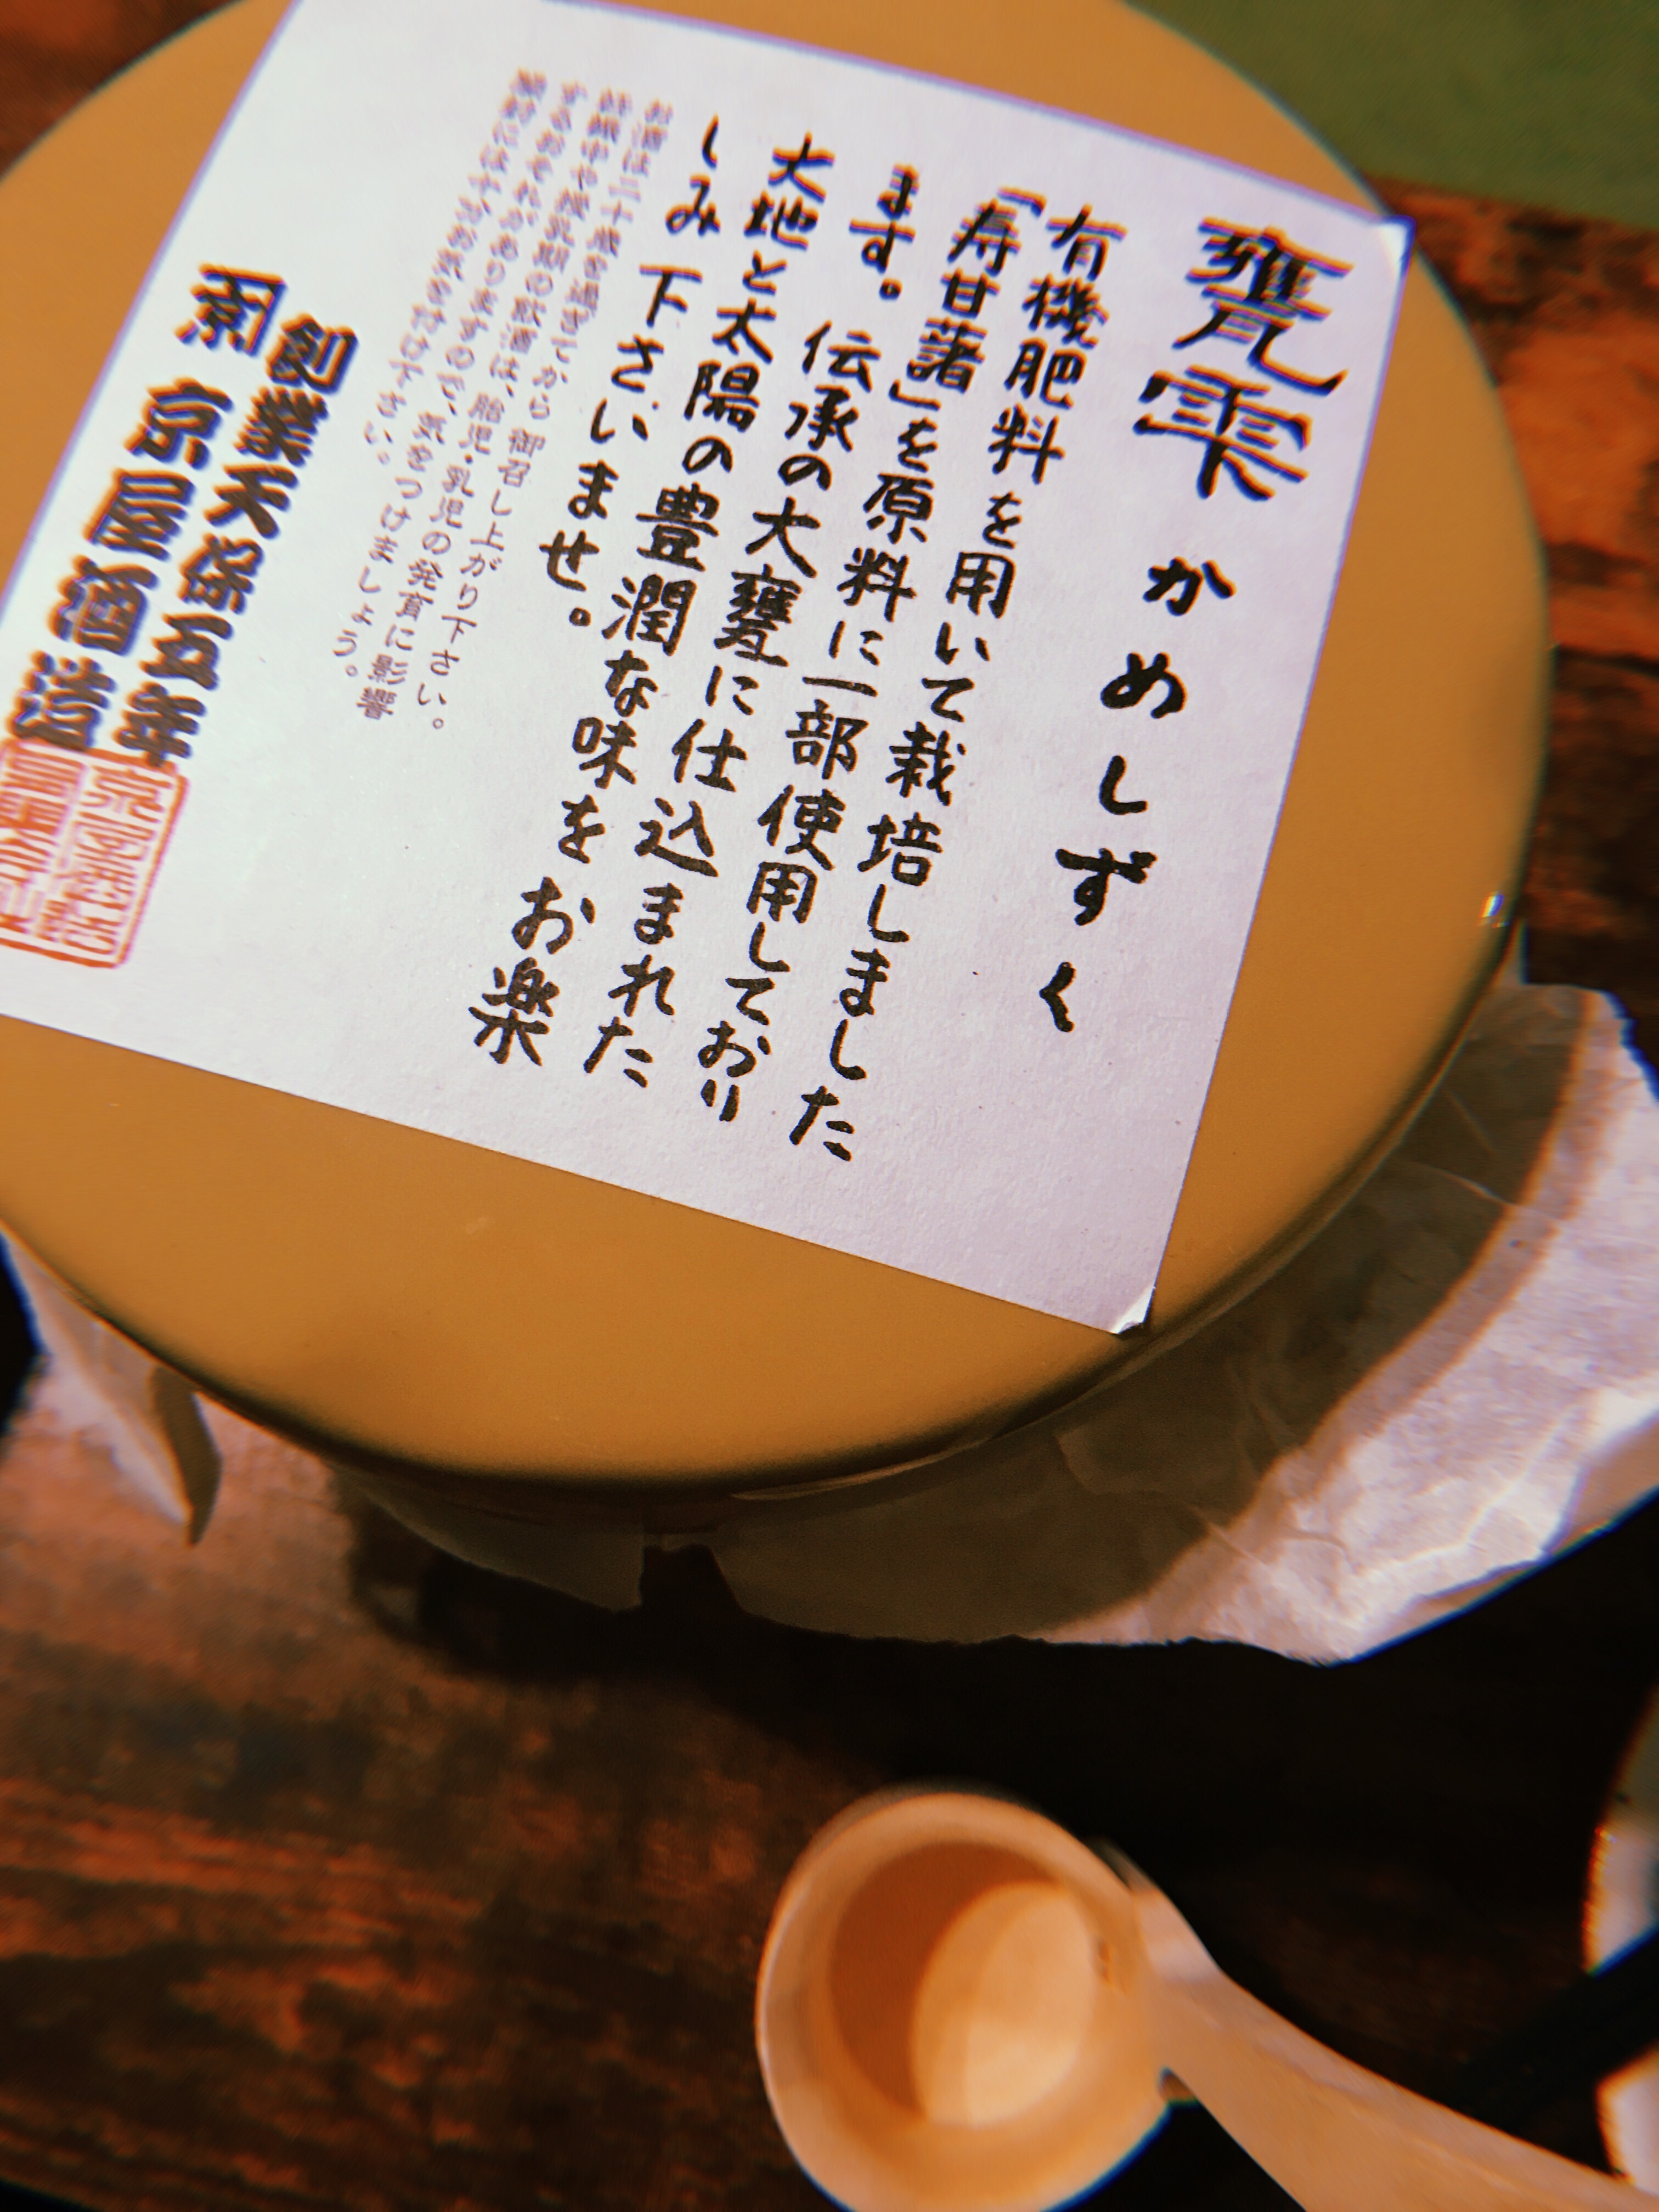 甕雫 かめしずく
有機肥料を用いて栽培しました
「寿甘藷」を原料に一部使用しており
ます。伝承の大甕に仕込まれた
大地と太陽の豊潤な味をお楽
しみ下さいませ。
お酒は二十歳を過ぎてから御召し上がり下さい。
妊娠中や授乳期の飲酒は、胎児・乳児の発育に影響
するおそれがありますので、気をつけましょう。
開封には十分お気を付け下さい。
創業天保五年
京屋酒造